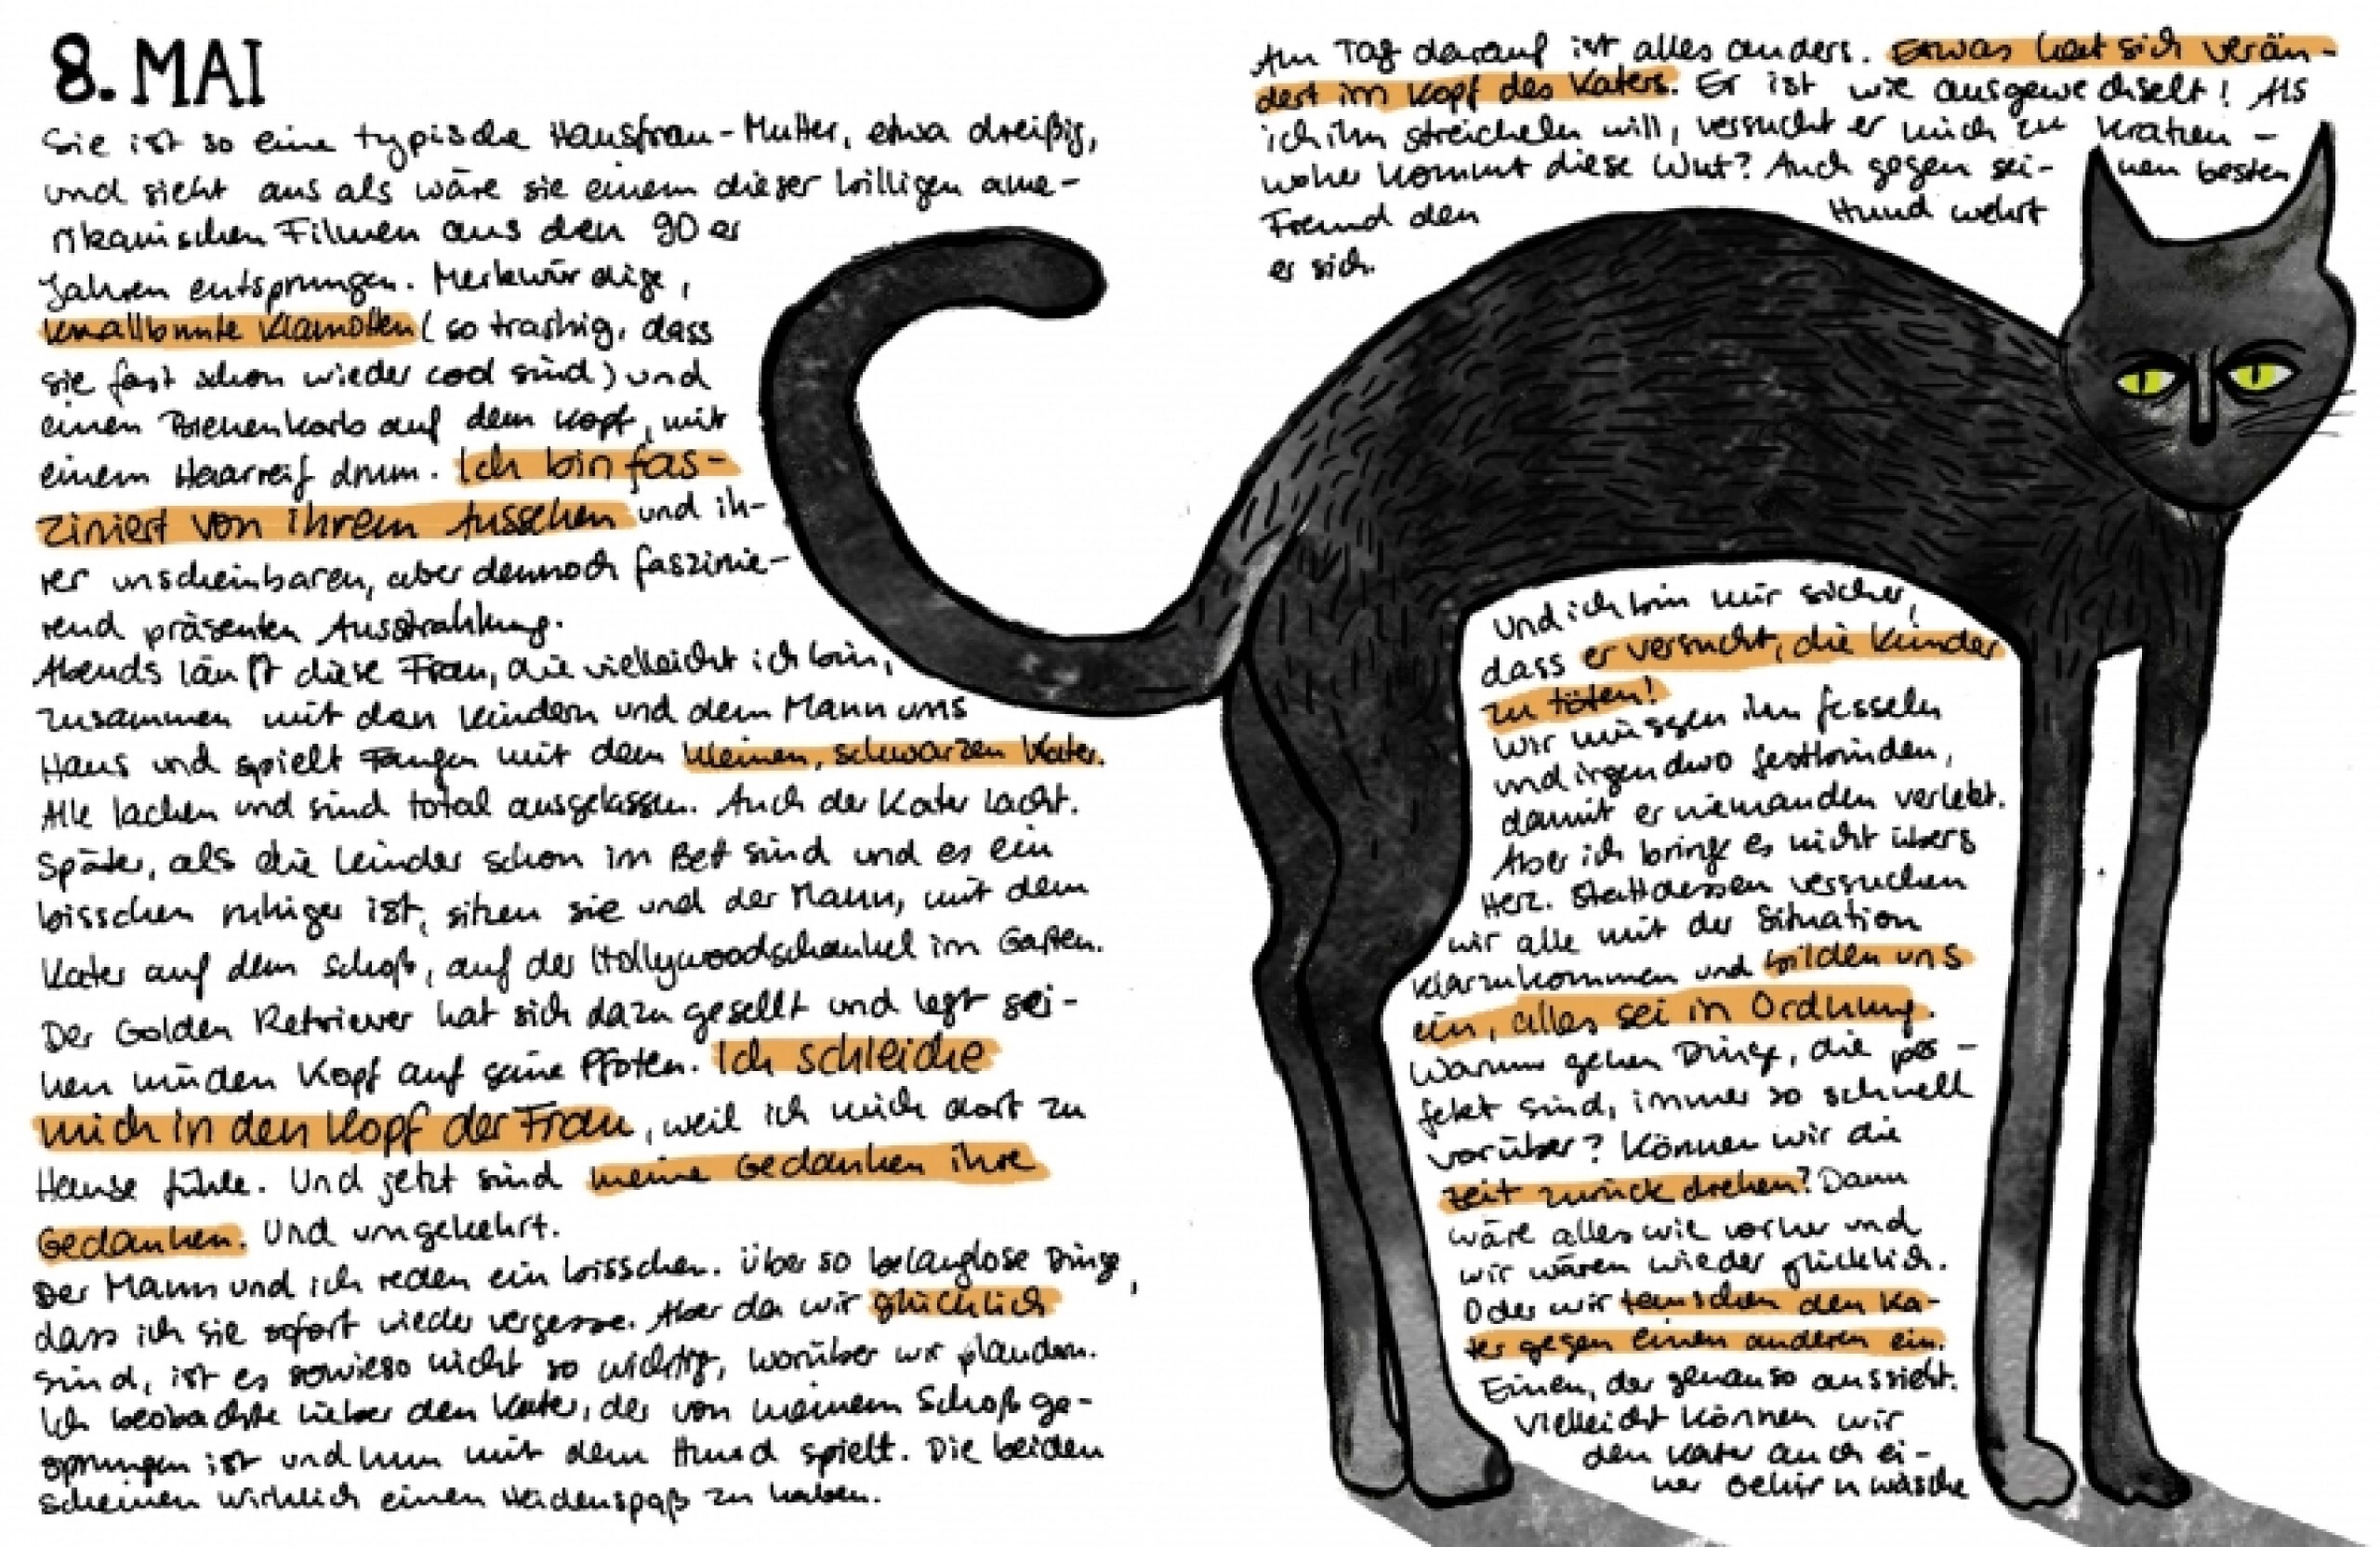 8. MAI
Sie ist so eine typische Hausfrau-Mutter, etwa dreißig,
und sieht aus als wäre sie einem dieser billigen ame-
rikanischen Filmen aus den 90er
Jahren entsprungen. Merkwürdige,
knallbunte Klamotten (so trashig, dass
sie fast schon wieder cool sind) und
einen Bienenkorb auf dem Kopf, mit
einem Haarreif drum. Ich bin fas-
ziniert von ihrem Aussehen und ih-
rer unscheinbaren, aber dennoch faszinie-
rend präsenten Ausstrahlung.
Abends läuft diese Frau, die vielleicht ich bin,
zusammen mit den Kindern und dem Mann ums
Haus und spielt Fangen mit dem kleinen, schwarzen Kater.
Alle lachen und sind total ausgelassen. Auch der Kater lacht.
Später, als die Kinder schon im Bett sind und es ein
bisschen ruhiger ist, sitzen sie und der Mann, mit dem
Kater auf dem Schoß, auf der Hollywoodschaukel im Garten.
Der Golden Retriever hat sich dazu gesellt und legt sei-
nen müden Kopf auf seine Pfoten. Ich schleiche
mich in den Kopf der Frau, weil ich mich dort zu
Hause fühle. Und jetzt sind meine Gedanken ihre
Gedanken. Und umgekehrt.
Der Mann und ich reden ein bisschen. Über so belanglose Dinge,
dass ich sie sofort wieder vergesse. Aber da wir glücklich
sind, ist es sowieso nicht so wichtig, worüber wir plaudern.
Ich beobachte lieber den Kater, der von meinem Schoß ge-
sprungen ist und nun mit dem Hund spielt. Die beiden
scheinen wirklich einen Heidenspaß zu haben.
Am Tag darauf ist alles anders. Etwas hat sich verän-
dert im Kopf des Katers. Er ist wie ausgewechselt! Als
ich ihn streicheln will, versucht er mich zu kratzen -
woher kommt diese Wut? Auch gegen sei- nen besten
Freund den Hund wehrt
er sich.
Und ich bin mir sicher,
dass er versucht, die Kinder
zu töten!
Wir müssen ihn fesseln
und irgendwo festbinden,
damit er niemanden verletzt.
Aber ich bringe es nicht übers
Herz. Stattdessen versuchen
wir alle mit der Situation
klarzukommen und bilden uns
ein, alles sei in Ordnung.
Warum gehen Dinge, die per-
fekt sind, immer so schnell
vorüber? Können wir die
Zeit zurück drehen? Dann
wäre alles wie vorher und
wir wären wieder glücklich.
Oder wir tauschen den Ka-
ter gegen einen anderen ein.
Einen, der genauso aussieht.
Vielleicht können wir
den Kater auch ei-
ner Gehirnwäsche